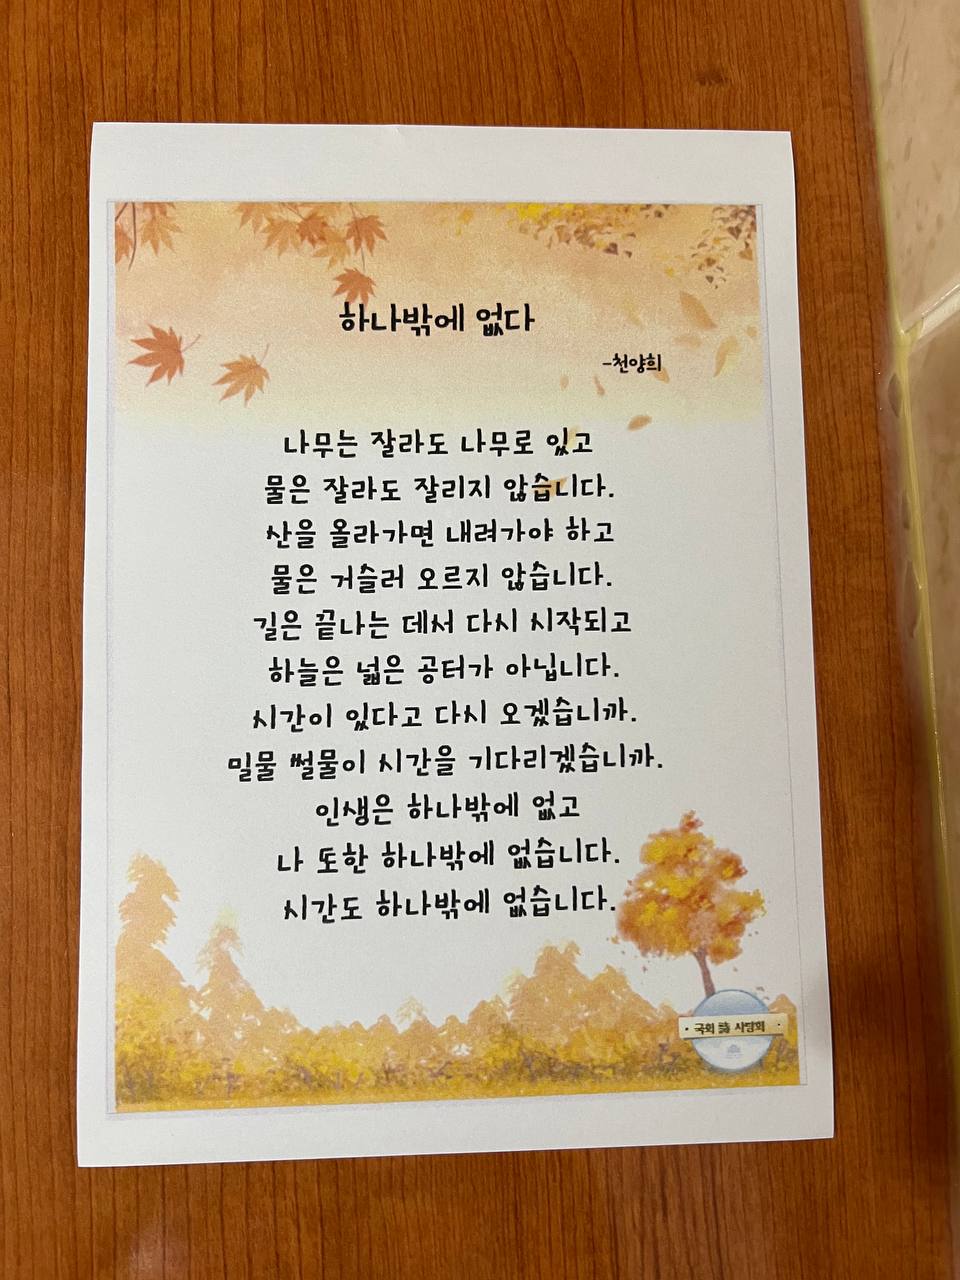 하나밖에 없다
-천양희
나무는 잘라도 나무로 있고
물은 잘라도 잘리지 않습니다.
산을 올라가면 내려가야 하고
물은 거슬러 오르지 않습니다.
길은 끝나는 데서 다시 시작되고
하늘은 넓은 공터가 아닙니다.
시간이 있다고 다시 오겠습니까.
밀물 썰물이 시간을 기다리겠습니까.
인생은 하나밖에 없고
나 또한 하나밖에 없습니다.
시간도 하나밖에 없습니다.
· 국회 詩 사랑회 ·